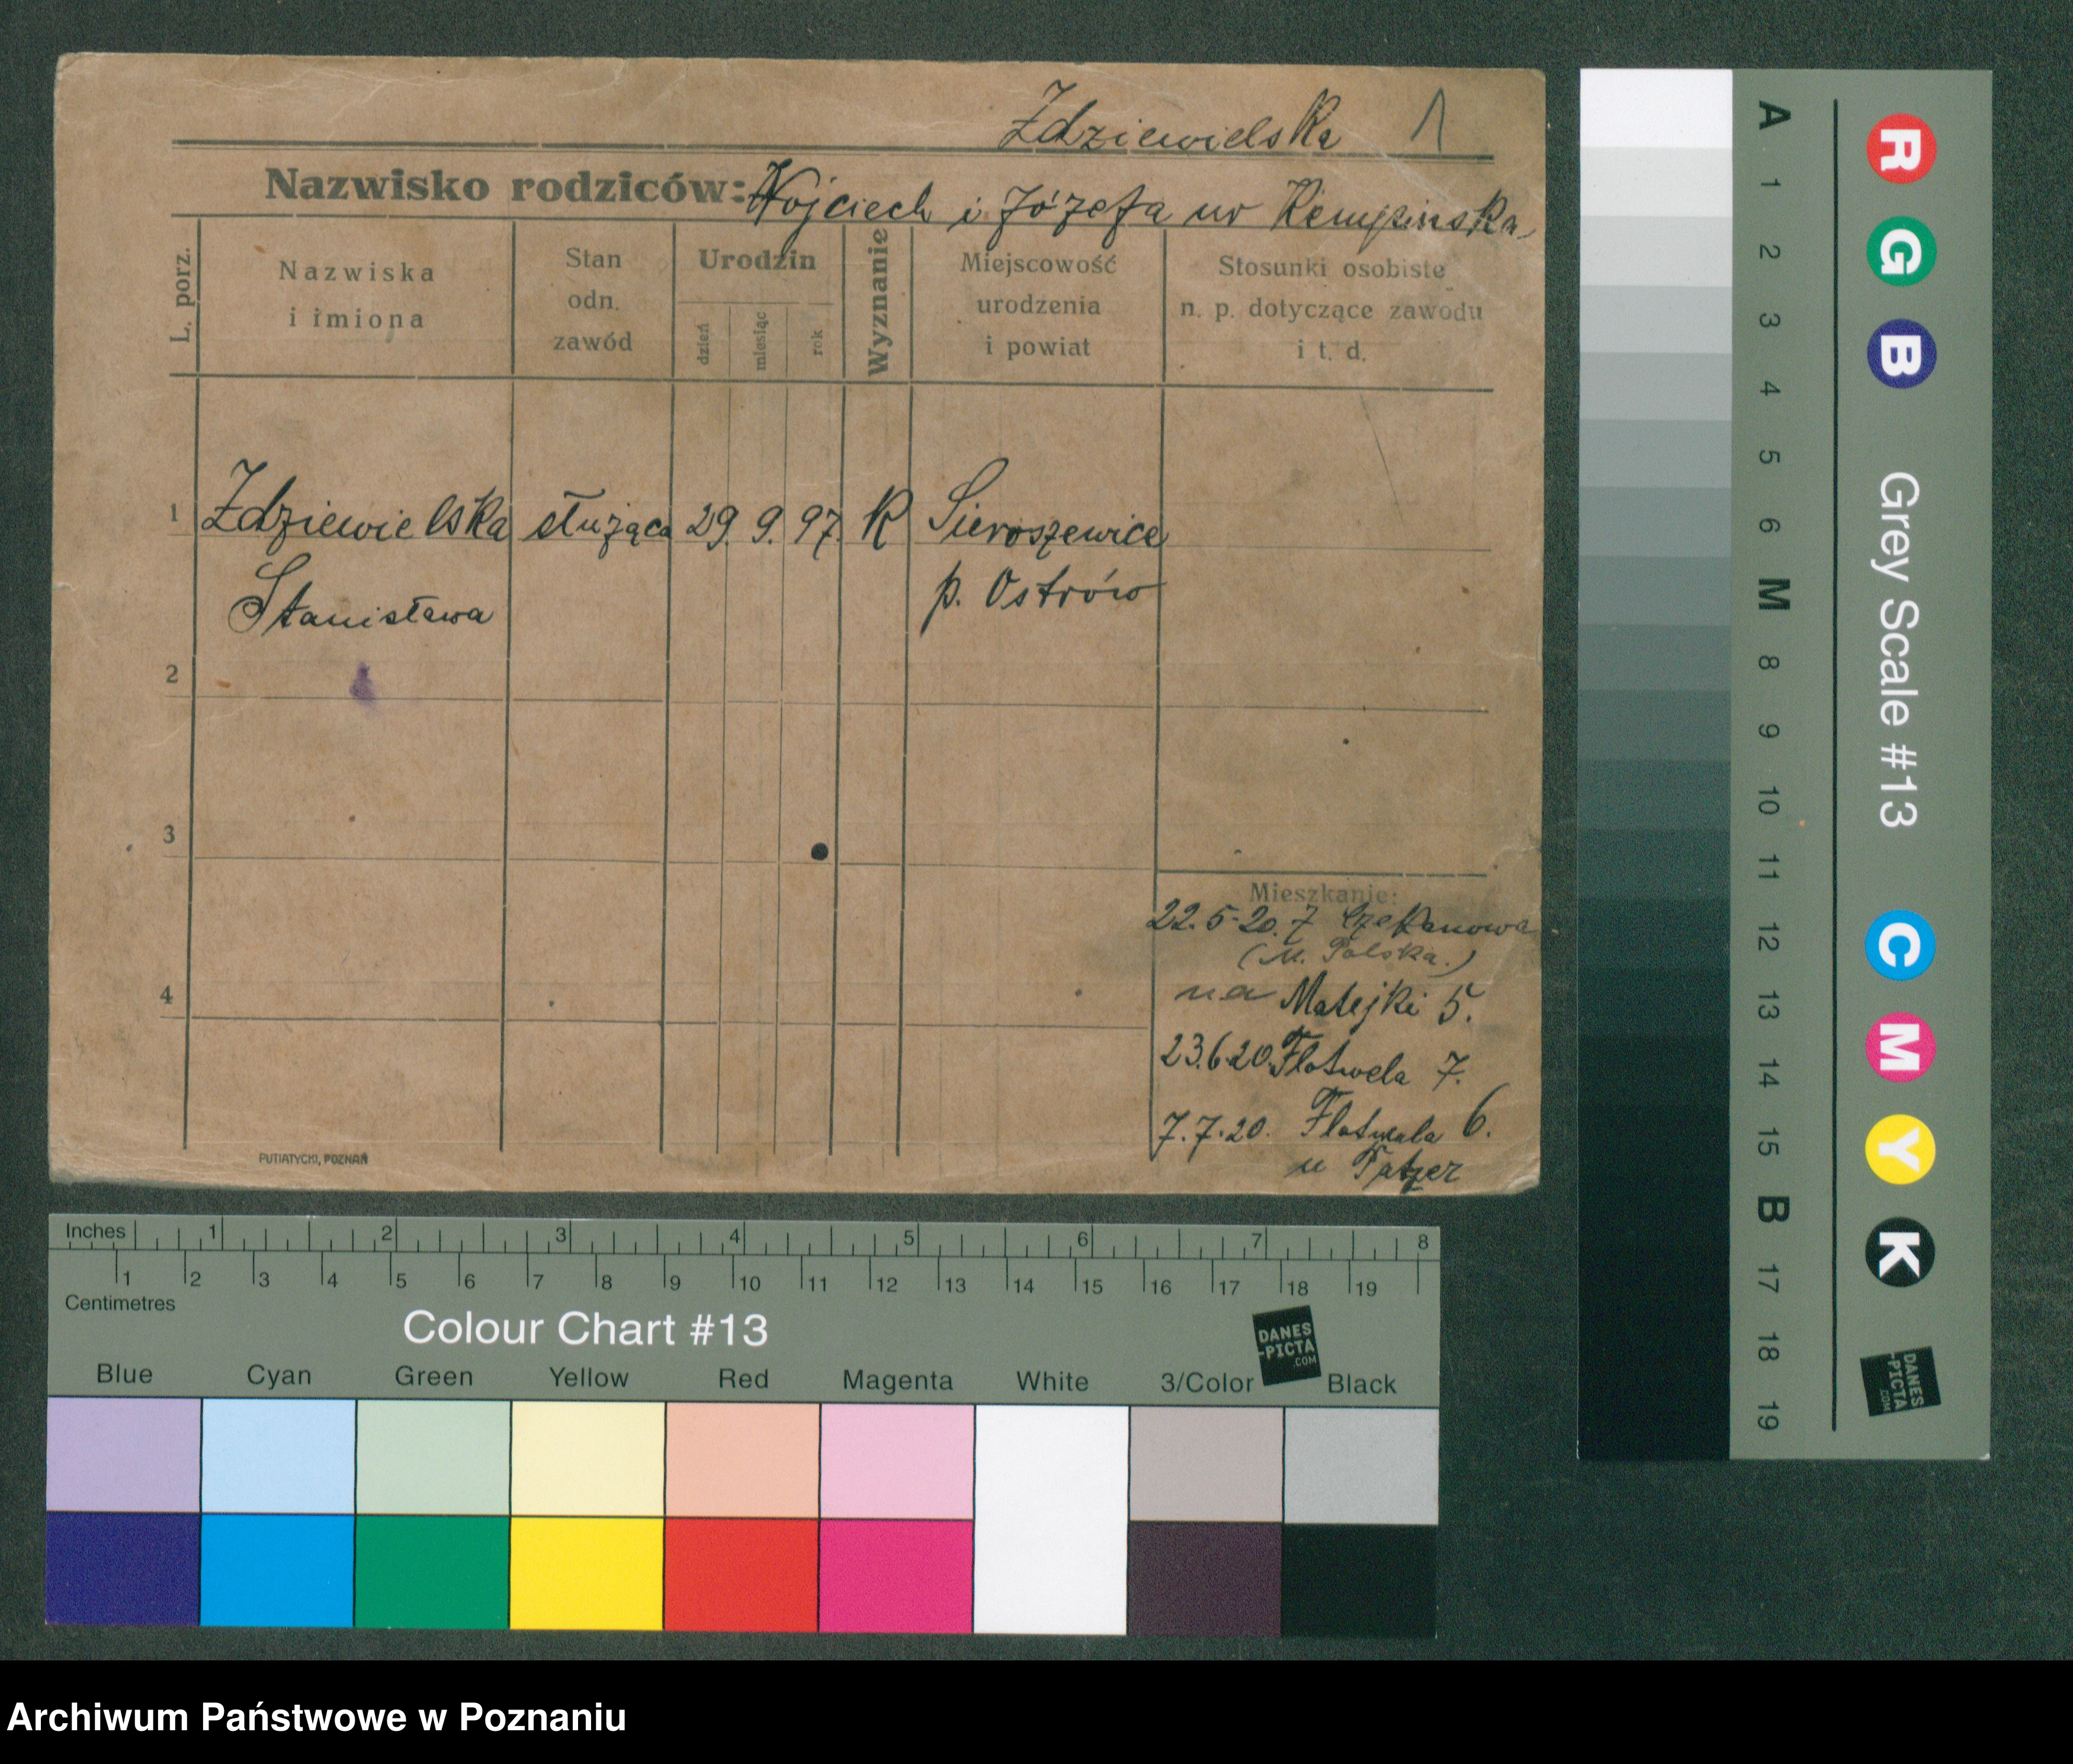 Zdziewielska 1
Nazwisko rodziców: Wojciech i Józefa ur Kempinska
L. porz.
Nazwiska
i imiona
Stan
odn.
zawód
Urodzin
dzień
miesiąc
rok
Wyznanie
Miejscowość
urodzenia
i powiat
Stosunki osobiste
n. p. dotyczące zawodu
i t. d.
1 Zdziewielska służąca 29. 9. 97. K Sieroszewice
Stanisława p. Ostrów
2
3
4
Mieszkanie:
22.5.20. z Czekanowa
(M. Polska.)
na Matejki 5.
23.6.20. Flotwela 7.
7.7.20. Flotwela 6.
u
PUTIATYCKI, POZNAŃ
Inches 1 2 3 4 5 6 7 8
1 2 3 4 5 6 7 8 9 10 11 12 13 14 15 16 17 18 19
Centimetres
Colour Chart #13
DANES
-PICTA
.COM
Blue Cyan Green Yellow Red Magenta White 3/Color Black
A 1 2 3 4 5 6 M 8 9 10 11 12 13 14 15 B 17 18 19
R G B Grey Scale #13 C M Y K
DANES
-PICTA
.COM
Archiwum Państwowe w Poznaniu